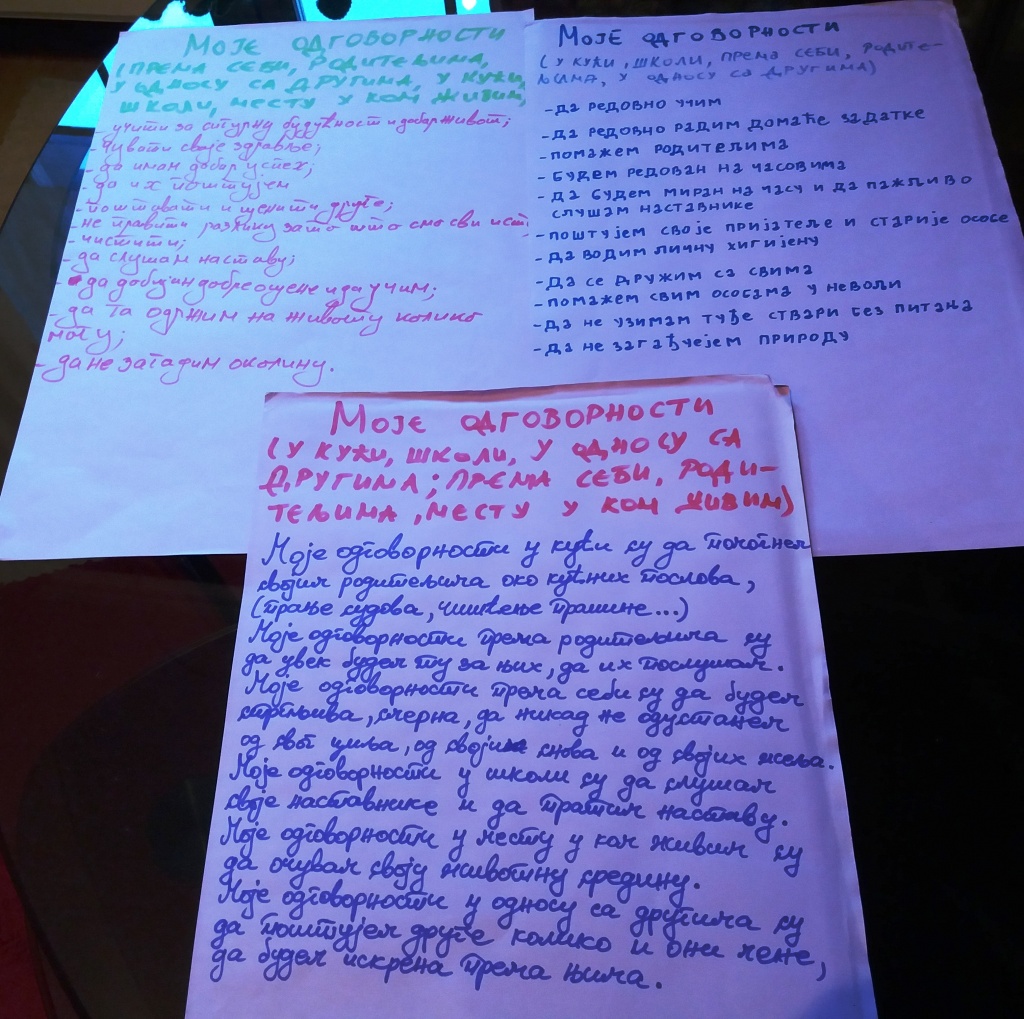 МОЈЕ ОДГОВОРНОСТИ
(ПРЕМА СЕБИ, РОДИТЕЉИМА,
У ОДНОСУ СА ДРУГИМА, У КУЋИ,
ШКОЛИ, МЕСТУ У КОМ ЖИВИМ,
- учити за сигурну будућност и добар живот;
- чувати своје здравље;
- да имам добар успех;
- да их поштујем
- поштовати и ценити друге;
- не правити разлику зато што смо сви исти;
- чистити;
- да слушам наставу;
- да добијем добре оцене и да учим;
- да га одржим на животу колико
могу;
- да не загадим околину.
МОЈЕ ОДГОВОРНОСТИ
(У КУЋИ, ШКОЛИ, ПРЕМА СЕБИ, РОДИТЕ-
ЉИМА, У ОДНОСУ СА ДРУГИМА)
- ДА РЕДОВНО УЧИМ
- ДА РЕДОВНО РАДИМ ДОМАЋЕ ЗАДАТКЕ
- ПОМАЖЕМ РОДИТЕЉИМА
- БУДЕМ РЕДОВАН НА ЧАСОВИМА
- ДА БУДЕМ МИРАН НА ЧАСУ И ДА ПАЖЉИВО
СЛУШАМ НАСТАВНИКЕ
- ПОШТУЈЕМ СВОЈЕ ПРИЈАТЕЉЕ И СТАРИЈЕ ОСОБЕ
- ДА ВОДИМ ЛИЧНУ ХИГИЈЕНУ
- ДА СЕ ДРУЖИМ СА СВИМА
- ПОМАЖЕМ СВИМ ОСОБАМА У НЕВОЛИ
- ДА НЕ УЗИМАМ ТУЂЕ СТВАРИ БЕЗ ПИТАЊА
- ДА НЕ ЗАГАЂУЈЕМ ПРИРОДУ
МОЈЕ ОДГОВОРНОСТИ
(У КУЋИ, ШКОЛИ, У ОДНОСУ СА
ДРУГИМА; ПРЕМА СЕБИ, РОДИ-
ТЕЉИМА, МЕСТУ У КОМ ЖИВИМ)
Моје одговорности у кући су да помогнем
својим родитељима око кућних послова,
(прање судова, чишћење прашине...)
Моје одговорности према родитељима су
да увек будем ту за њих, да их послушам.
Моје одговорности према себи су да будем
стрпљива, смерна, да никад не одустанем
од свог циља, од својих снова и од својих жеља.
Моје одговорности у школи су да слушам
своје наставнике и да пратим наставу.
Моје одговорности у месту у ком живим су
да очувам своју животну средину.
Моје одговорности у односу са другима су
да поштујем друге колико и они мене,
да будем искрена према њима.